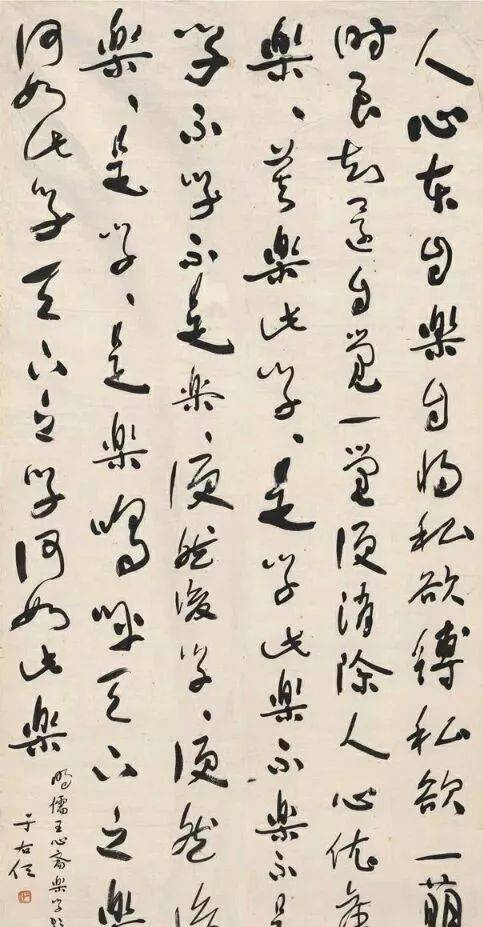 人心本自樂自將私欲縛私欲一萌
時良知還自覺一覺便消除人心依舊
樂、莫樂此學、是學此樂不樂不是
學不學不是樂、便然後學、便然後
樂、是學、是樂嗚呼天下之樂
何如此學天下之學何如此樂
明儒王心齋樂學歌
于右任